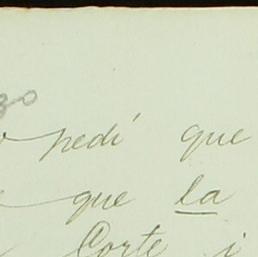 pedí que
que la
Corte i